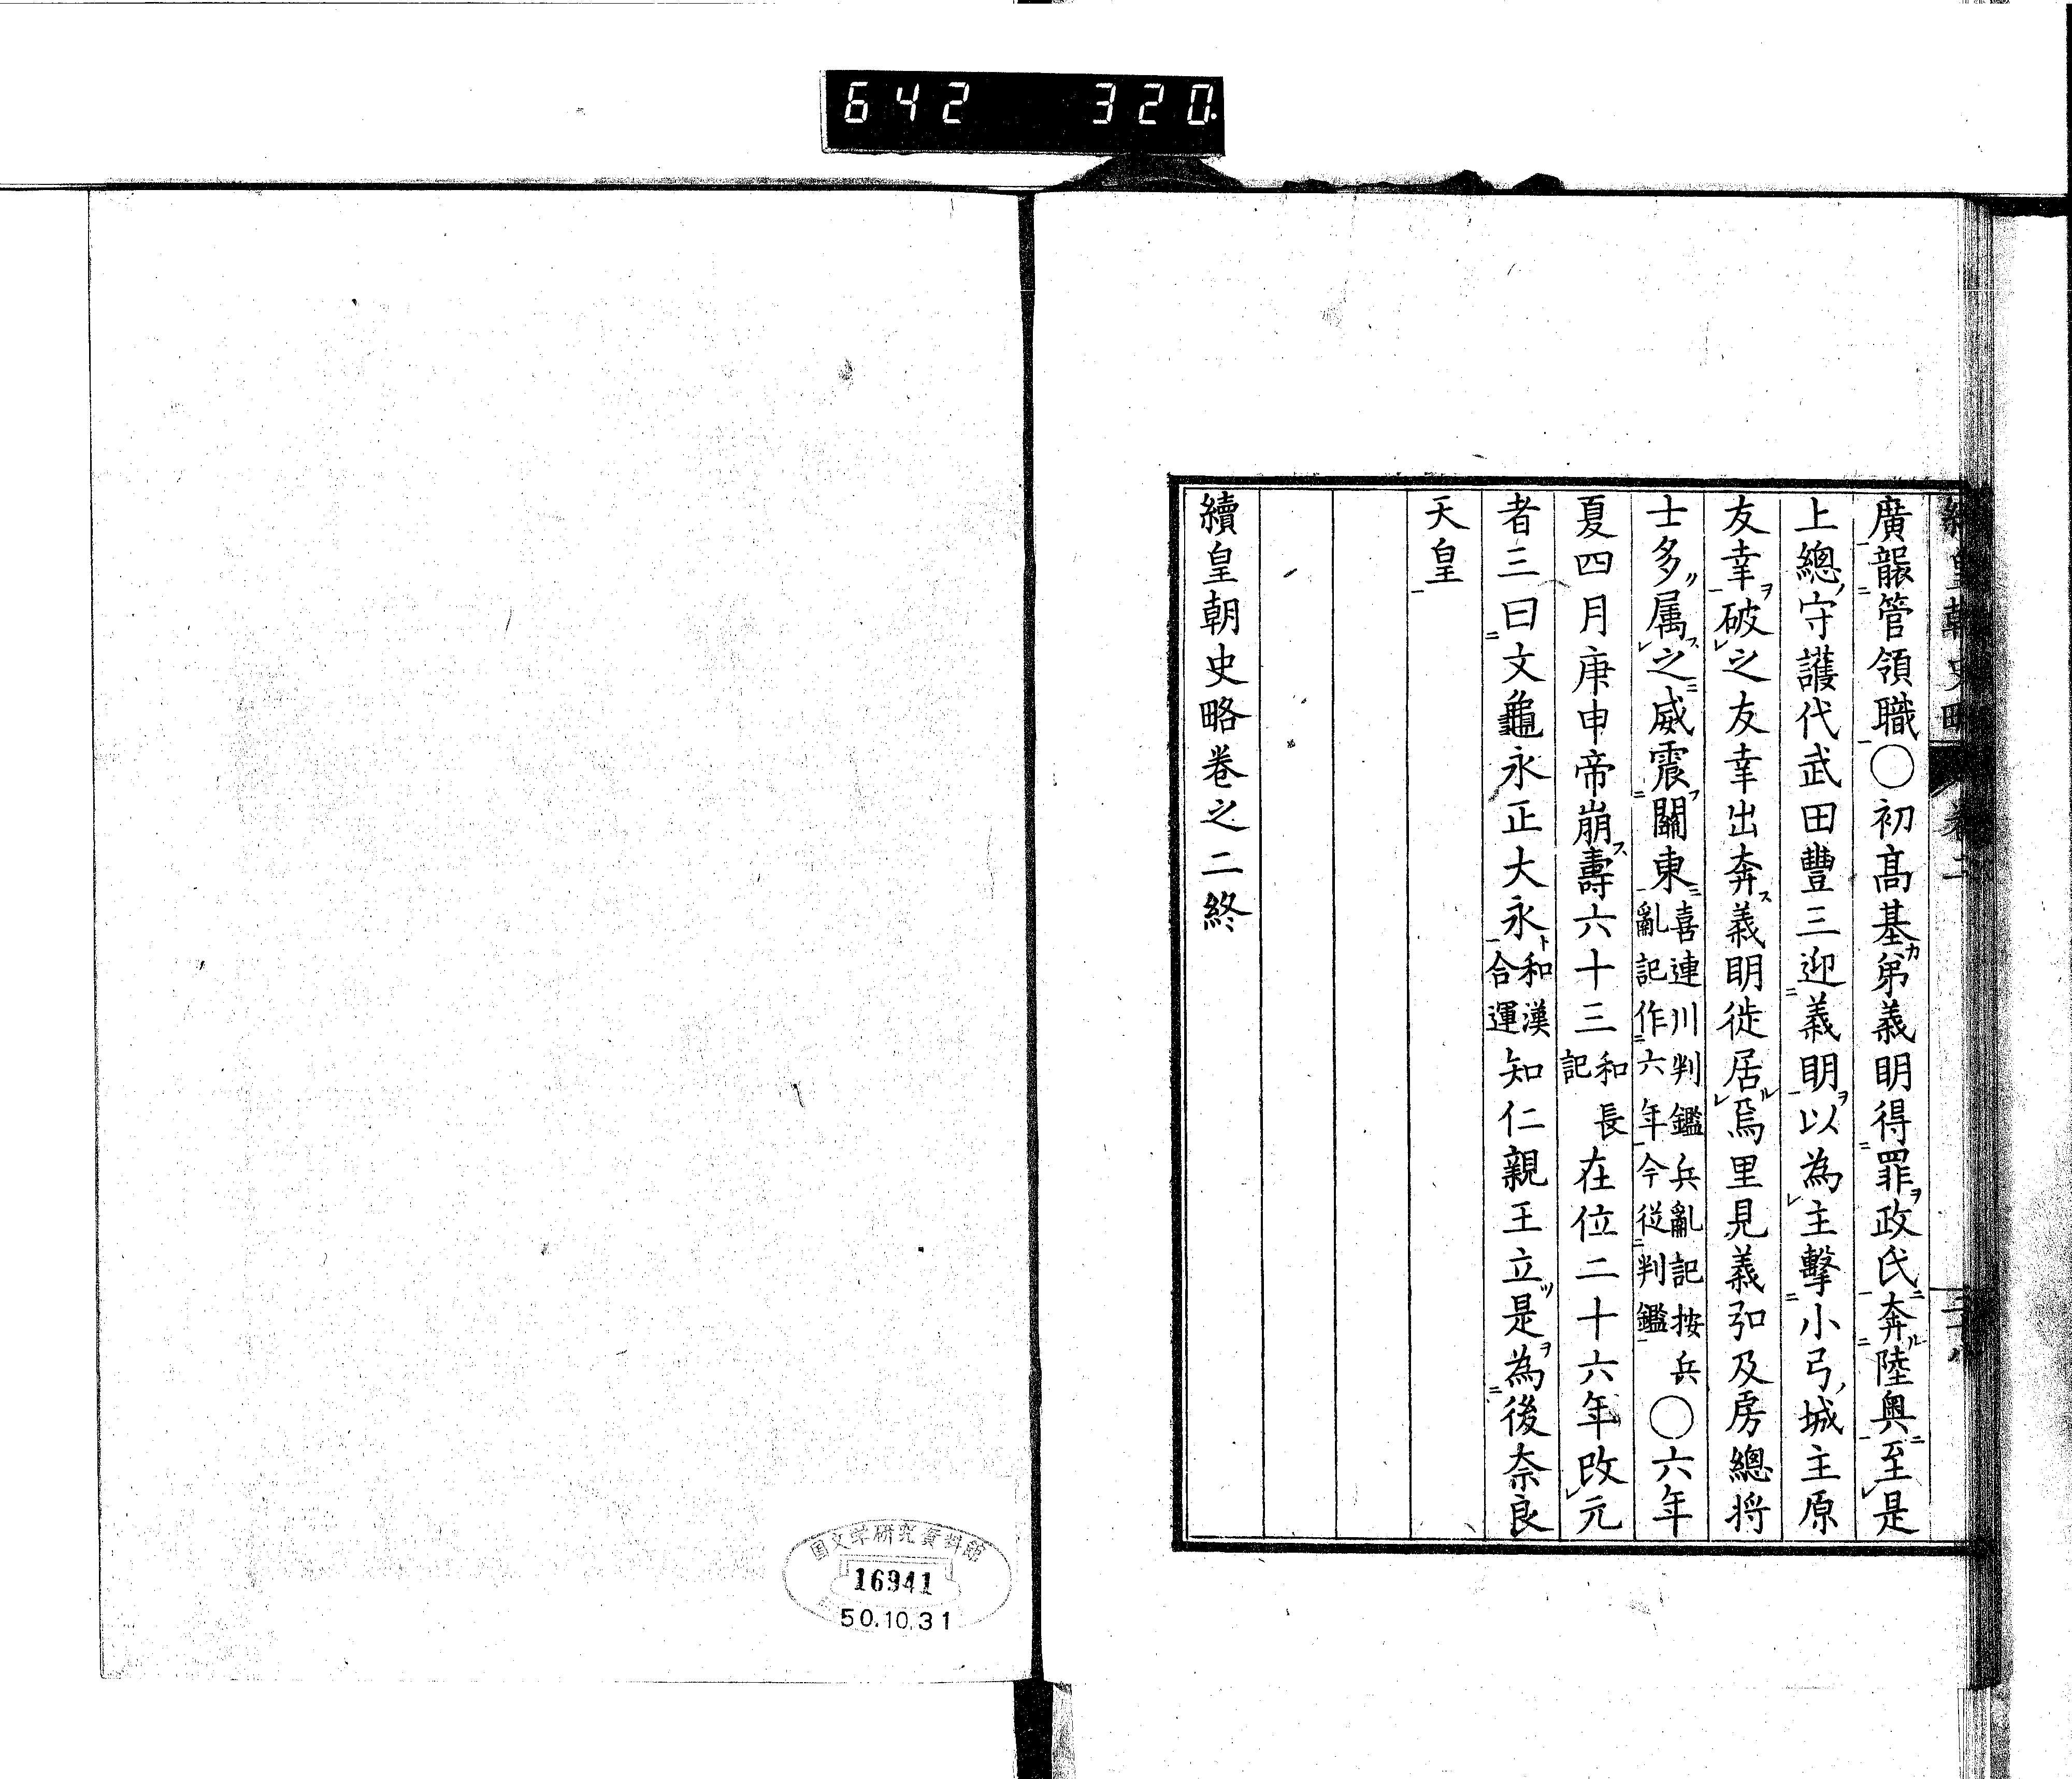 642 320.
續皇朝史略 卷二
廣襲管領職〇初髙基弟義明得罪政氏奔陸奧至是
上總守護代武田豐三迎義明以為主擊小弓城主原
友幸破之友幸出奔義明徙居焉里見義弘及房總將
士多属之威震關東喜連川判鑑兵亂記按兵亂記作六年今従判鑑〇六年
夏四月庚申帝崩壽六十三和長記在位二十六年改元
者三曰文龜永正大永和漢合運知仁親王立是為後奈良
天皇
續皇朝史略卷之二終
国文学研究資料館
16941
50.10.31